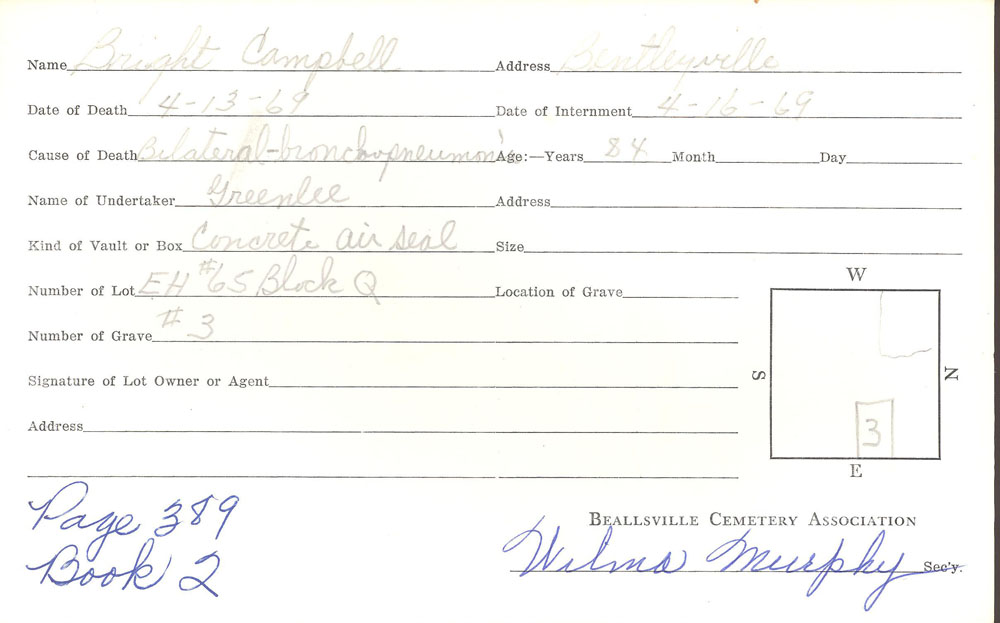 Name Bright Campbell Address Bentleyville
Date of Death 4-13-69 Date of Internment 4-16-69
Cause of Death Bilateral-bronchopneumonia Age:—Years 84 Month Day
Name of Undertaker Greenlee Address
Kind of Vault or Box Concrete air seal Size
Number of Lot EH #65 Block Q Location of Grave
Number of Grave # 3
Signature of Lot Owner or Agent
Address
W
S
N
3
E
Page 389
Book 2
BEALLSVILLE CEMETERY ASSOCIATION
Wilma Murphy Sec'y.